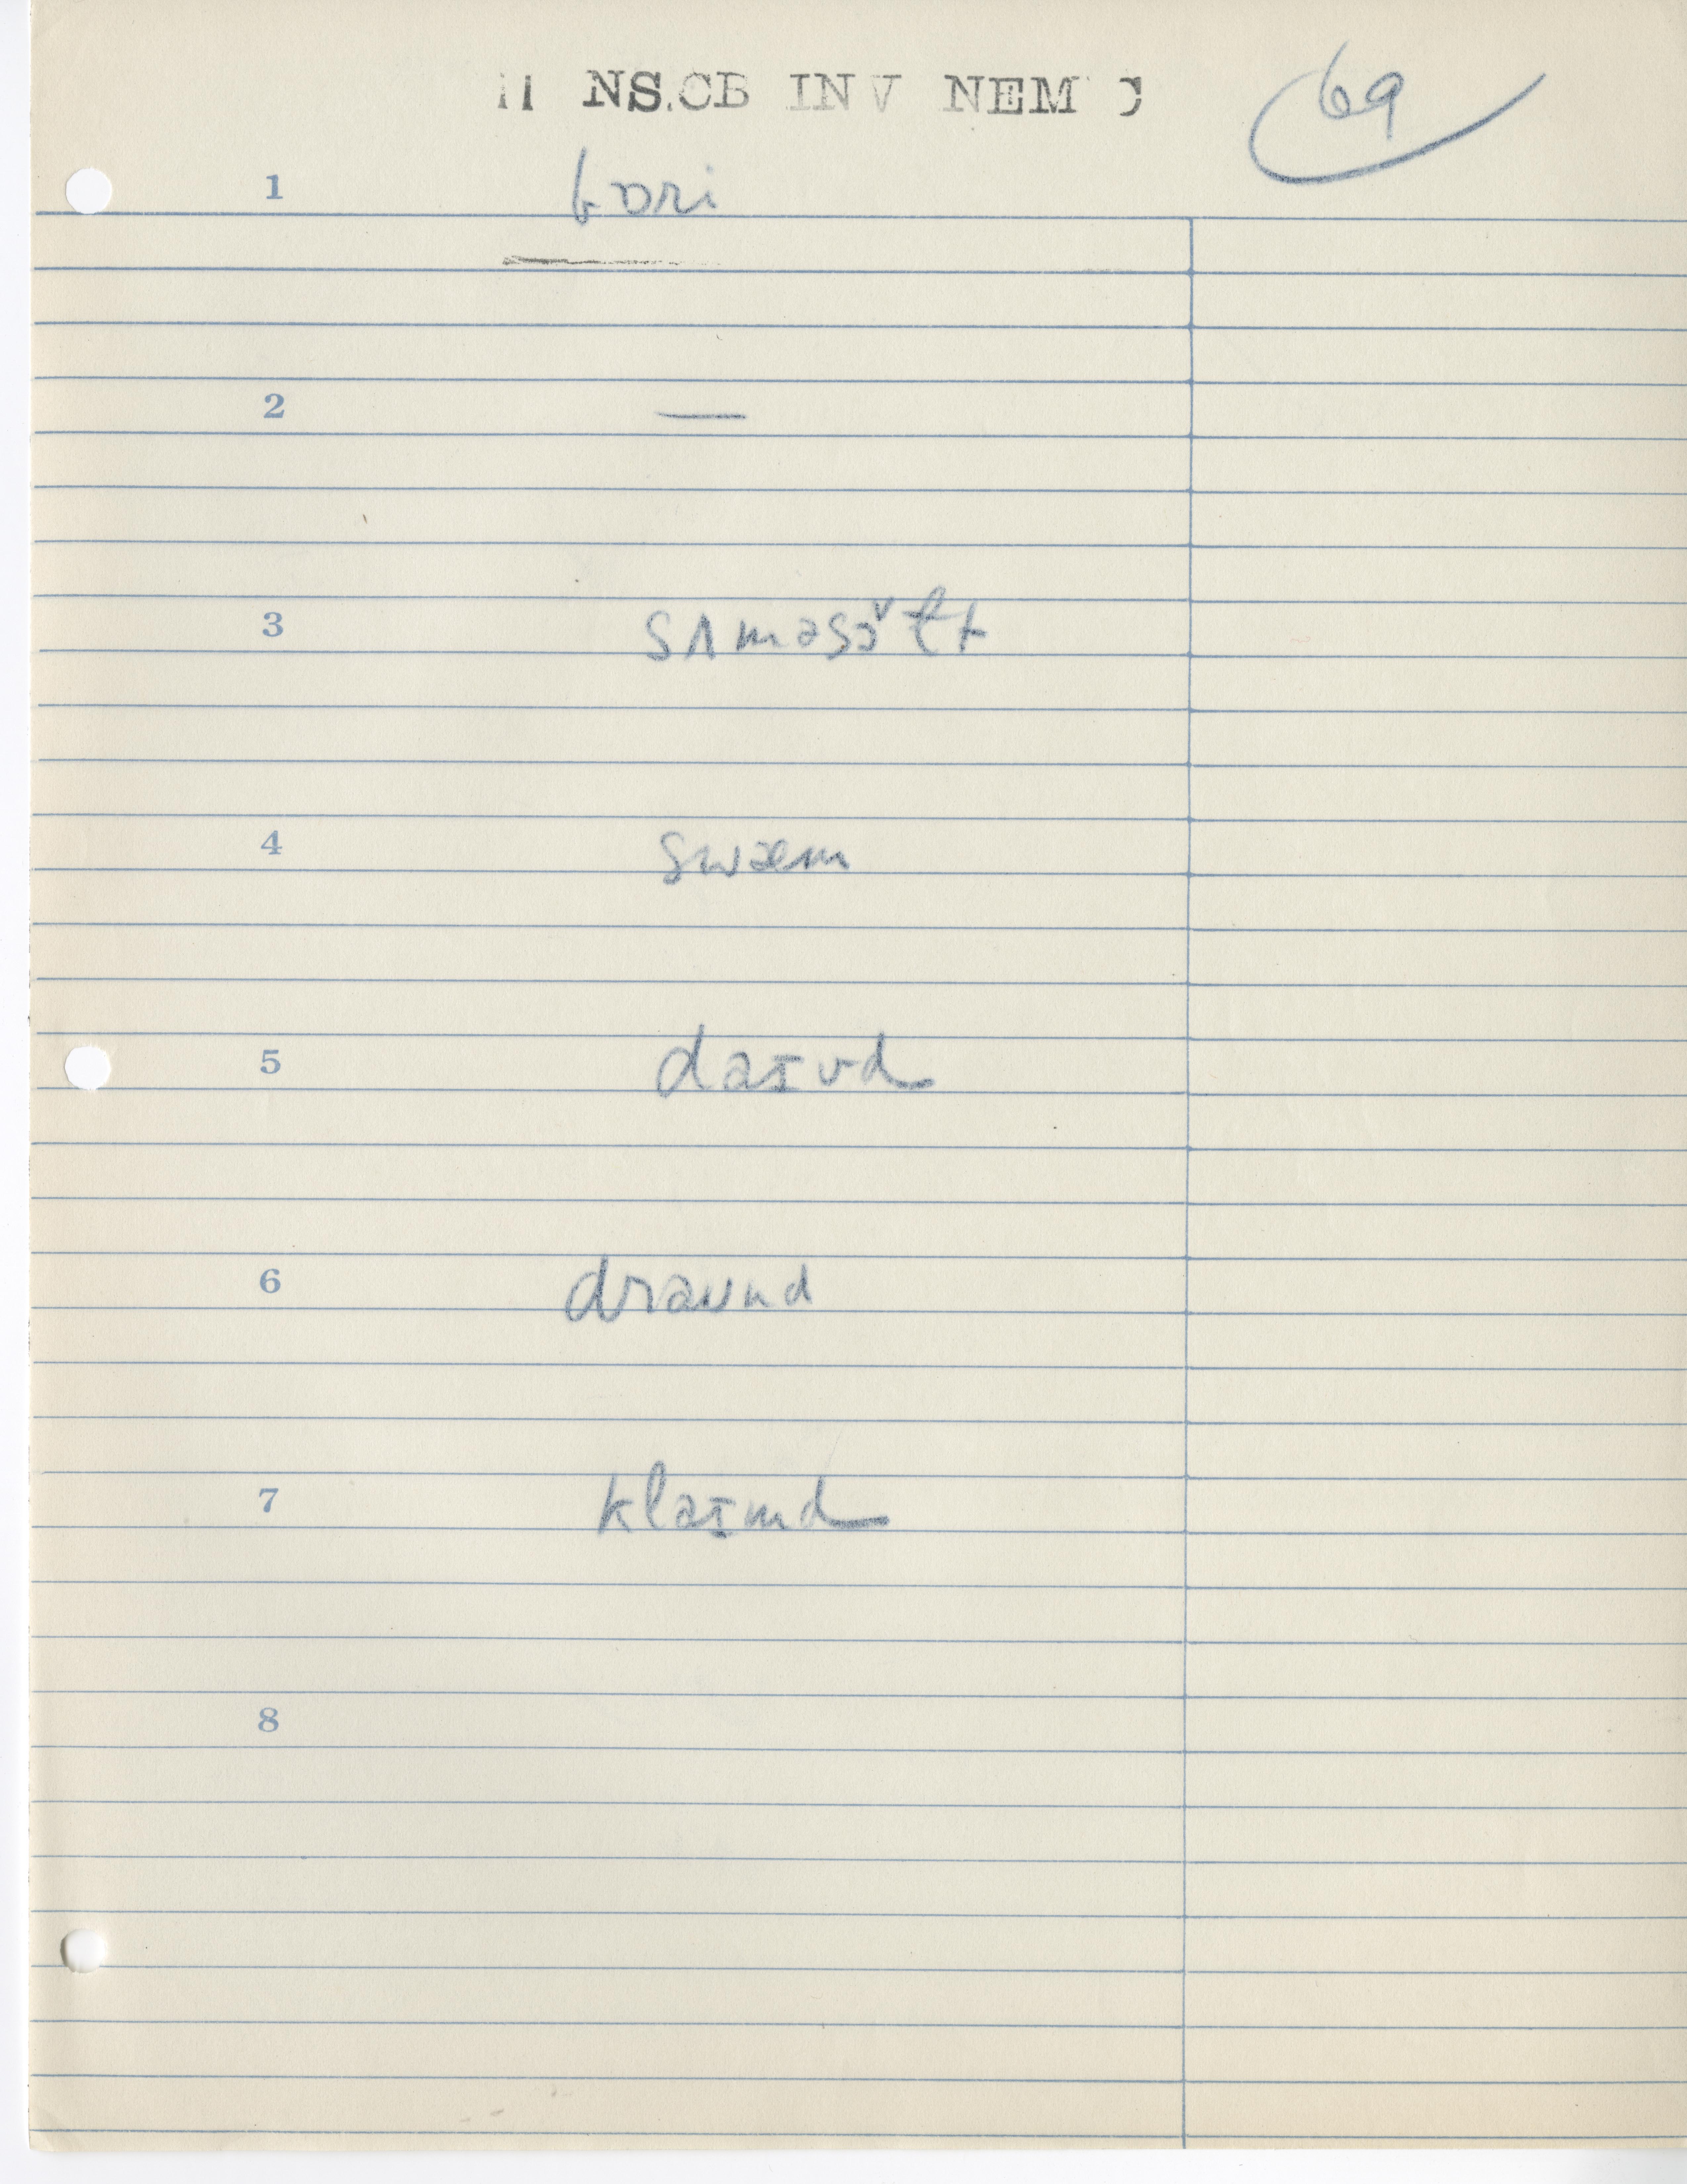 NS.CB INV NEM
69
1 bɔri
2 —
3 sʌməsɔ̌lt
4 swæm
5 daɪvd
6 draʊnd
7 klaɪmd
8